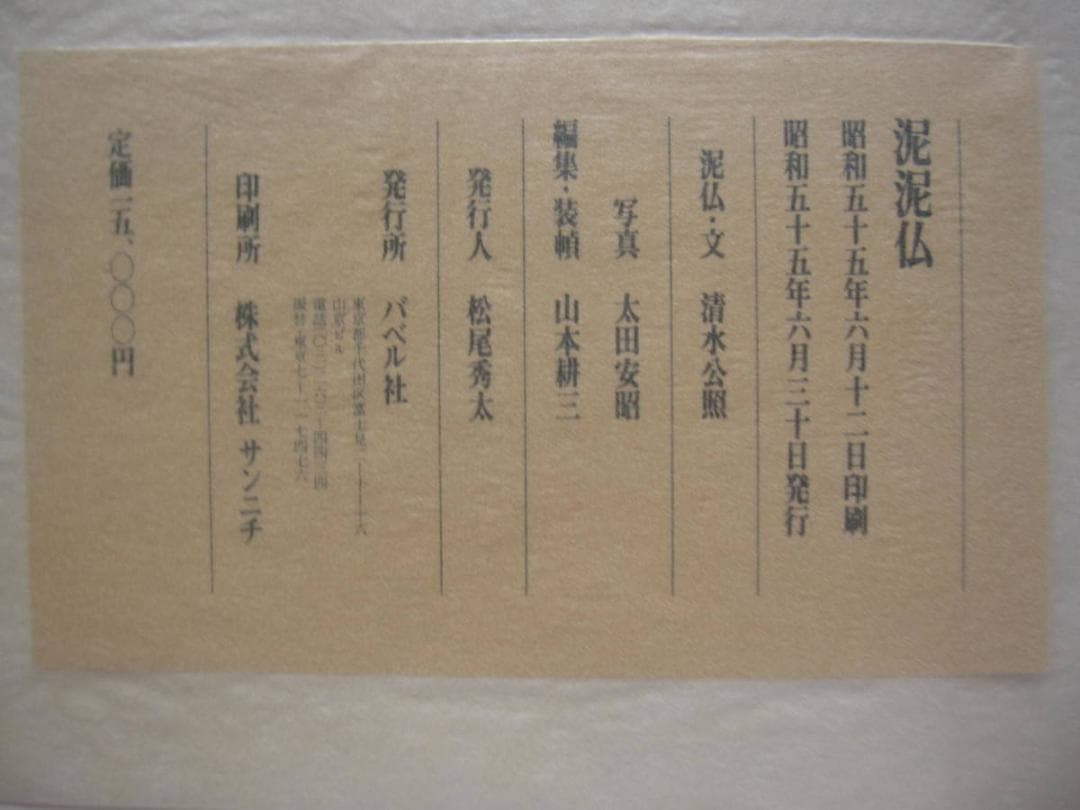 泥泥仏
昭和五十五年六月十二日印刷
昭和五十五年六月三十日発行
泥仏・文 清水公照
写真 太田安昭
編集・装幀 山本耕三
発行人 松尾秀太
発行所 バベル社
東京都千代田区富士見
山京ビル
電話〇三
振替・東京七
印刷所 株式会社サンニチ
定価一五、〇〇〇円